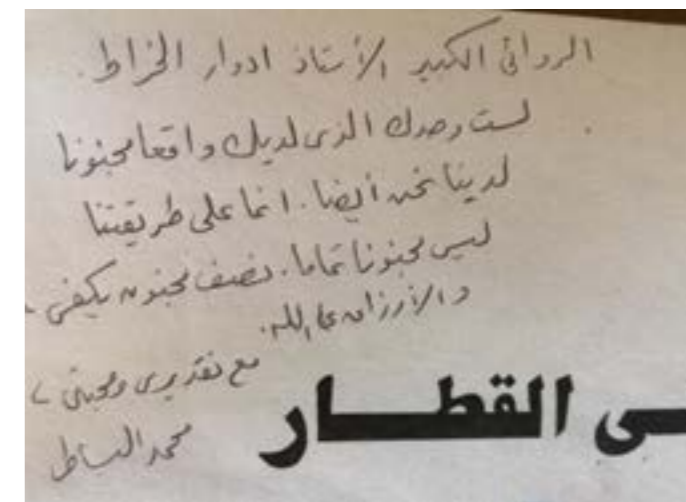 الروائى الكبير الأستاذ ادوار الخراط.
لست وحدك الذى لديك واقعا مجنونا
لدينا نحن أيضا. انما على طريقتنا
ليس مجنونا تماما. نصف مجنون يكفى
والأرزاق على الله.
مع تقديرى ومحبتى
محمد البساطى
ـى القطــــار